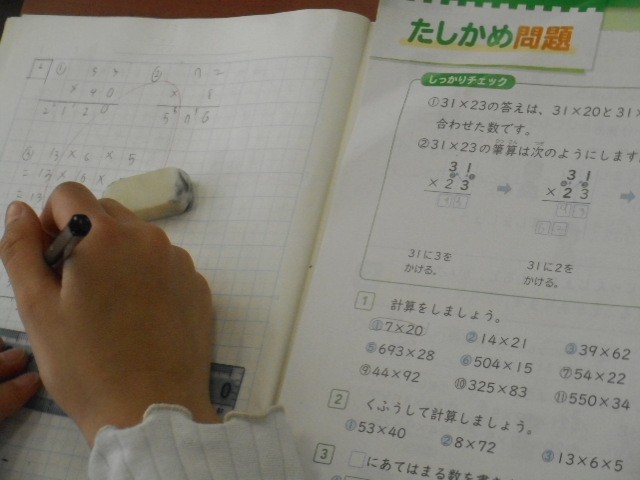 2
① 53
× 40
2120
② 72
× 8
576
③ 13 × 6 × 5
たしかめ問題
しっかりチェック
①31×23の答えは、31×20と31×
合わせた数です。
②31×23の筆算は次のようにします
31
×23
93
31
×23
93
31に3を
かける。
31に2を
かける。
1 計算をしましょう。
①7×20 ②14×21 ③39×62
⑤693×28 ⑥504×15 ⑦54×22
⑨44×92 ⑩325×83 ⑪550×34
2 くふうして計算しましょう。
①53×40 ②8×72 ③13×6×5
3 □にあてはまる数を書